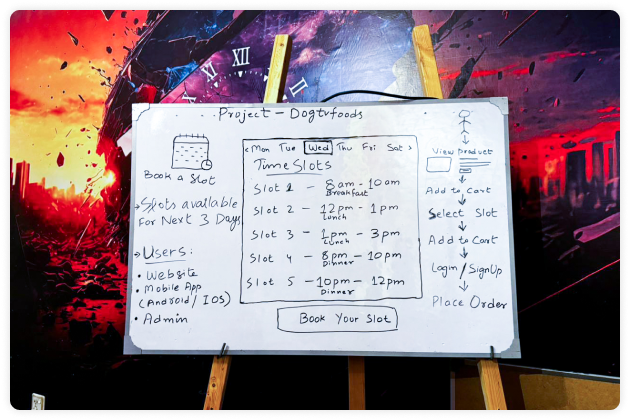 XI XII I
Project - Dogtvfoods
Book a Slot
→ Slots available
For Next 3 Days
→ Users:
• Website
• Mobile App
(Android / IOS)
• Admin
< Mon Tue Wed Thu Fri Sat >
Time Slots
Slot 1 - 8am - 10am
Breakfast
Slot 2 - 12pm - 1pm
Lunch
Slot 3 - 1pm - 3pm
Lunch
Slot 4 - 8pm - 10pm
Dinner
Slot 5 - 10pm - 12pm
Dinner
Book Your Slot
View Product
Add to Cart
Select Slot
Add to Cart
Login / SignUp
Place Order